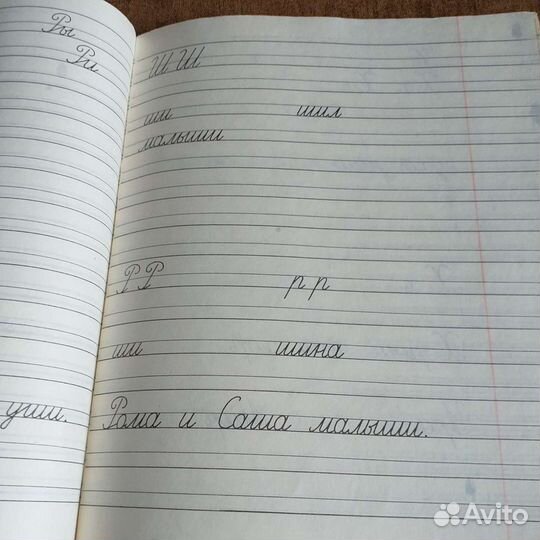 Ры
Ри
уши.
Ш Ш
ши шил
малыши
Р Р р р
ши шина
Рома и Саша малыши.
Avito